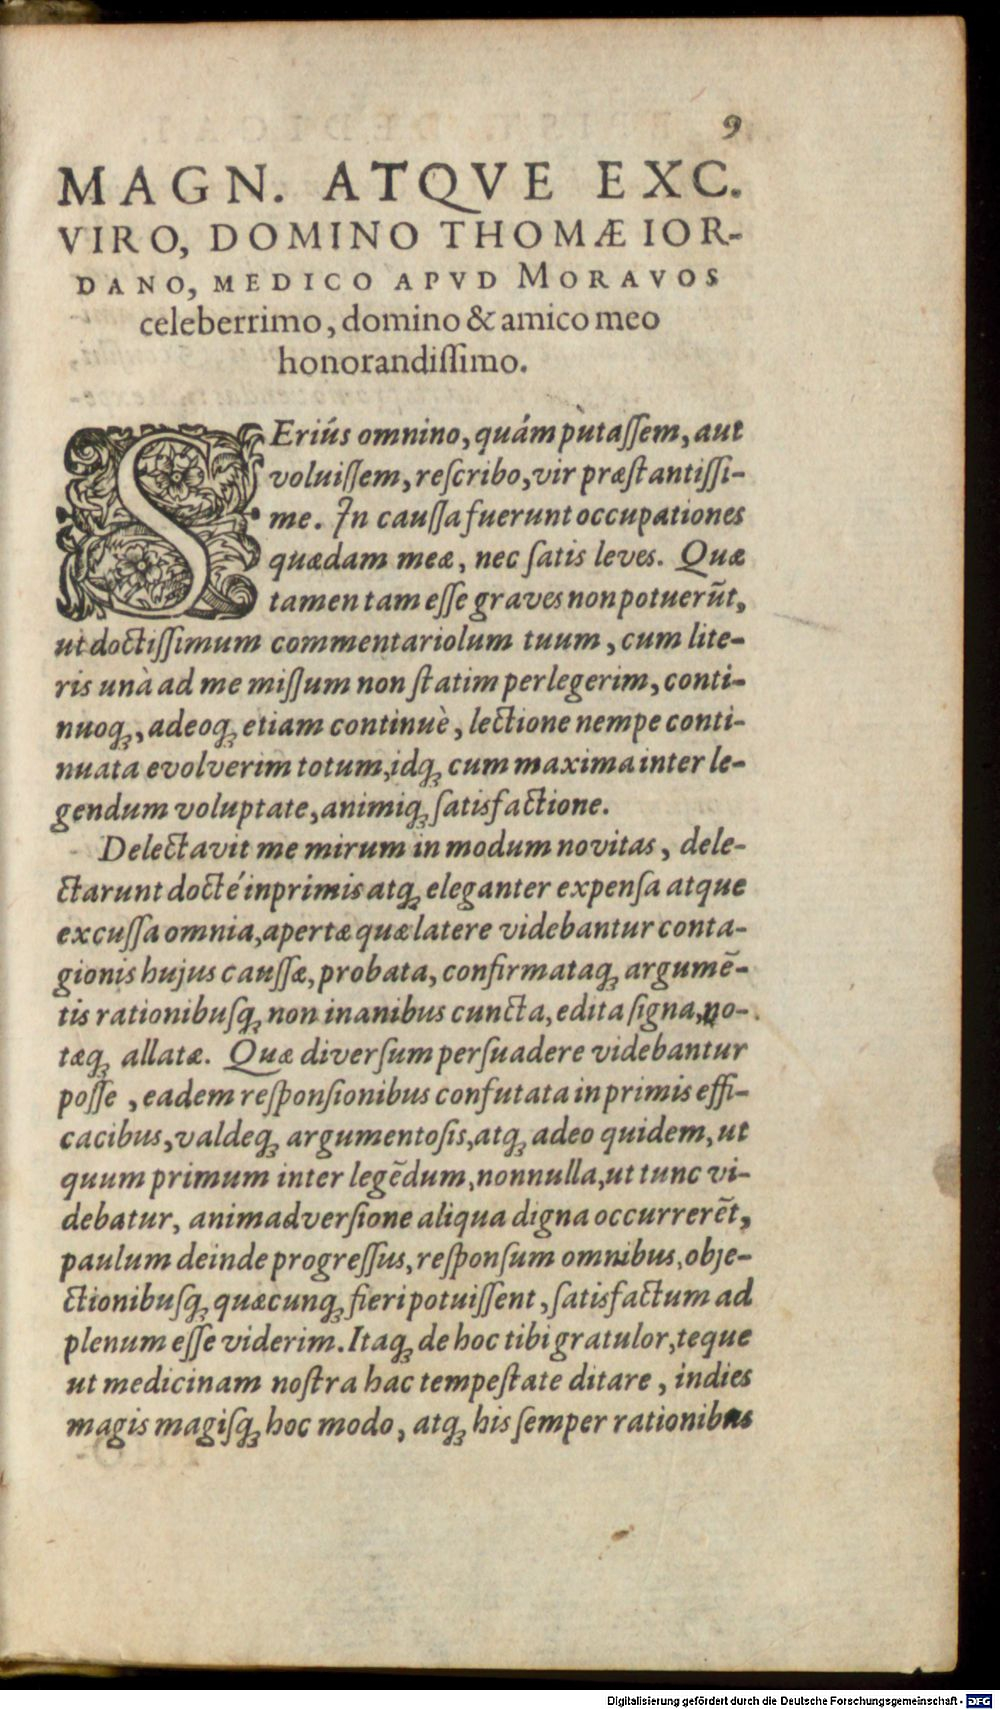 9
MAGN. ATQVE EXC.
VIRO, DOMINO THOMÆ IOR-
DANO, MEDICO APVD MORAVOS
celeberrimo, domino & amico meo
honorandiſſimo.
SEriús omnino, quám pùtaſſem, aut
voluiſſem, reſcribo, vir præſtantiſſi-
me. In cauſſa fuerunt occupationes
quædam meæ, nec ſatis leves. Quæ
tamen tam eſſe graves non potuerũt,
ut doctiſſimum commentariolum tuum, cum lite-
ris unà ad me miſſum non ſtatim perlegerim, conti-
nuoq́ꝫ, adeoqꝫ etiam continuè, lectione nempe conti-
nuata evolverim totum, idqꝫ cum maxima inter le-
gendum voluptate, animiqꝫ ſatisfactione.
Delectavit me mirum in modum novitas, dele-
ctarunt docté inprimis atqꝫ eleganter expenſa atque
excuſſa omnia, apertæ quæ latere videbantur conta-
gionis hujus cauſſæ, probata, confirmataqꝫ argumẽ-
tis rationibuſqꝫ non inanibus cuncta, edita ſigna, no-
tæqꝫ allatæ. Quæ diverſum perſuadere videbantur
poſſe, eadem reſponſionibus confutata inprimis effi-
cacibus, valdeqꝫ argumentoſis, atqꝫ adeo quidem, ut
quum primum inter legẽdum, nonnulla, ut tunc vi-
debatur, animadverſione aliqua digna occurrerẽt,
paulum deinde progreſſus, reſponſum omnibus, obje-
ctionibuſqꝫ quæcunqꝫ fieri potuiſſent, ſatisfactum ad
plenum eſſe viderim. Itaqꝫ de hoc tibi gratulor, teque
ut medicinam noſtra hac tempeſtate ditare, indies
magis magiſqꝫ hoc modo, atqꝫ his ſemper rationibus
Digitalisierung gefördert durch die Deutsche Forschungsgemeinschaft - DFG